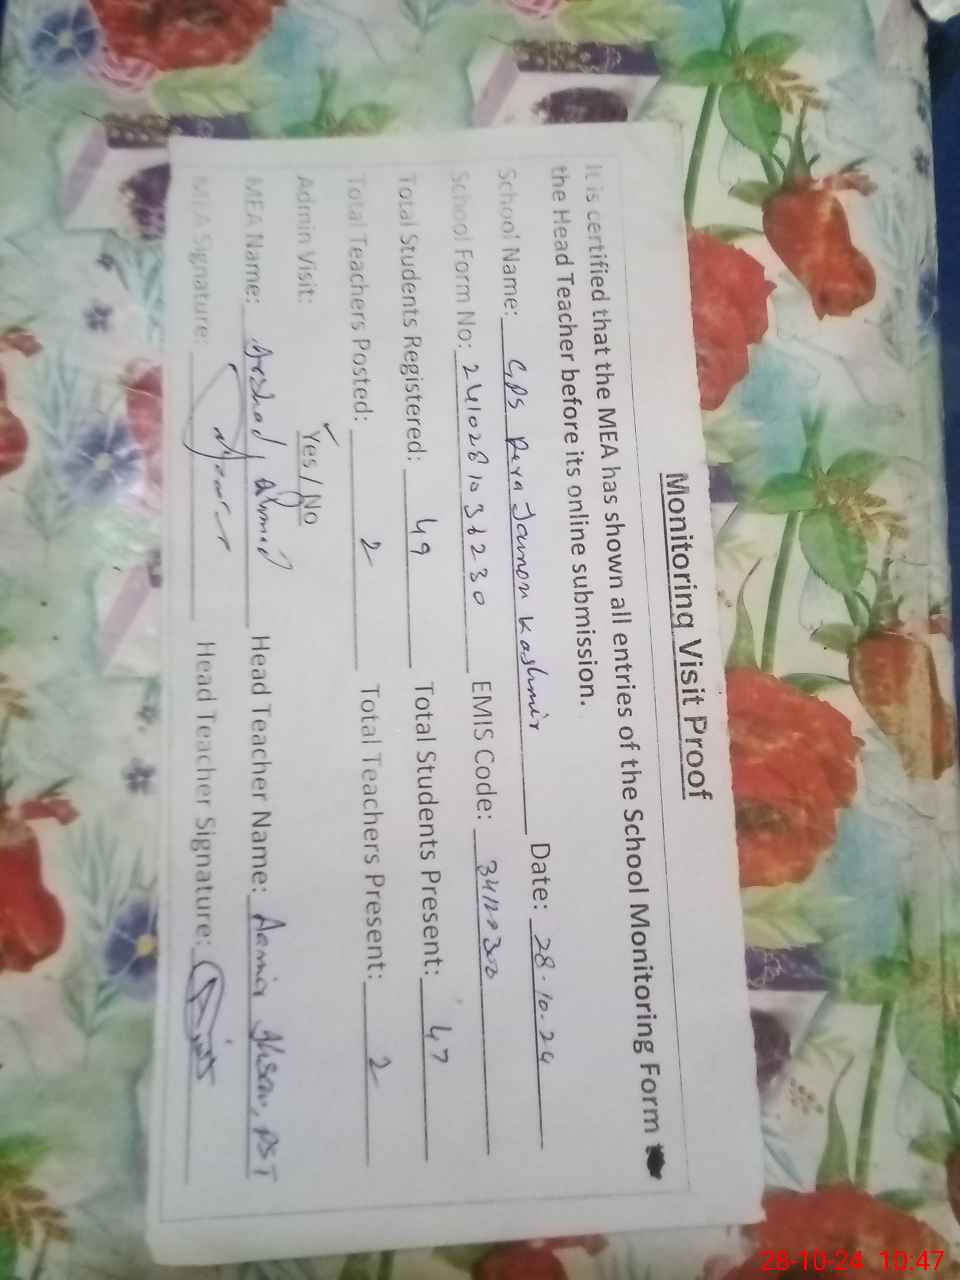 Monitoring Visit Proof
It is certified that the MEA has shown all entries of the School Monitoring Form
the Head Teacher before its online submission.
School Name: GPS Dera Jamon Kashmir Date: 28.10.24
School Form No: 241028103 230 EMIS Code:
Total Students Registered: 49 Total Students Present: 47
Total Teachers Posted: 2 Total Teachers Present: 2
Admin Visit: Yes / No
MEA Name: Arshad Ahmed Head Teacher Name: Aamir Ahsan, PST
MEA Signature: Head Teacher Signature:
28-10-24 10:47